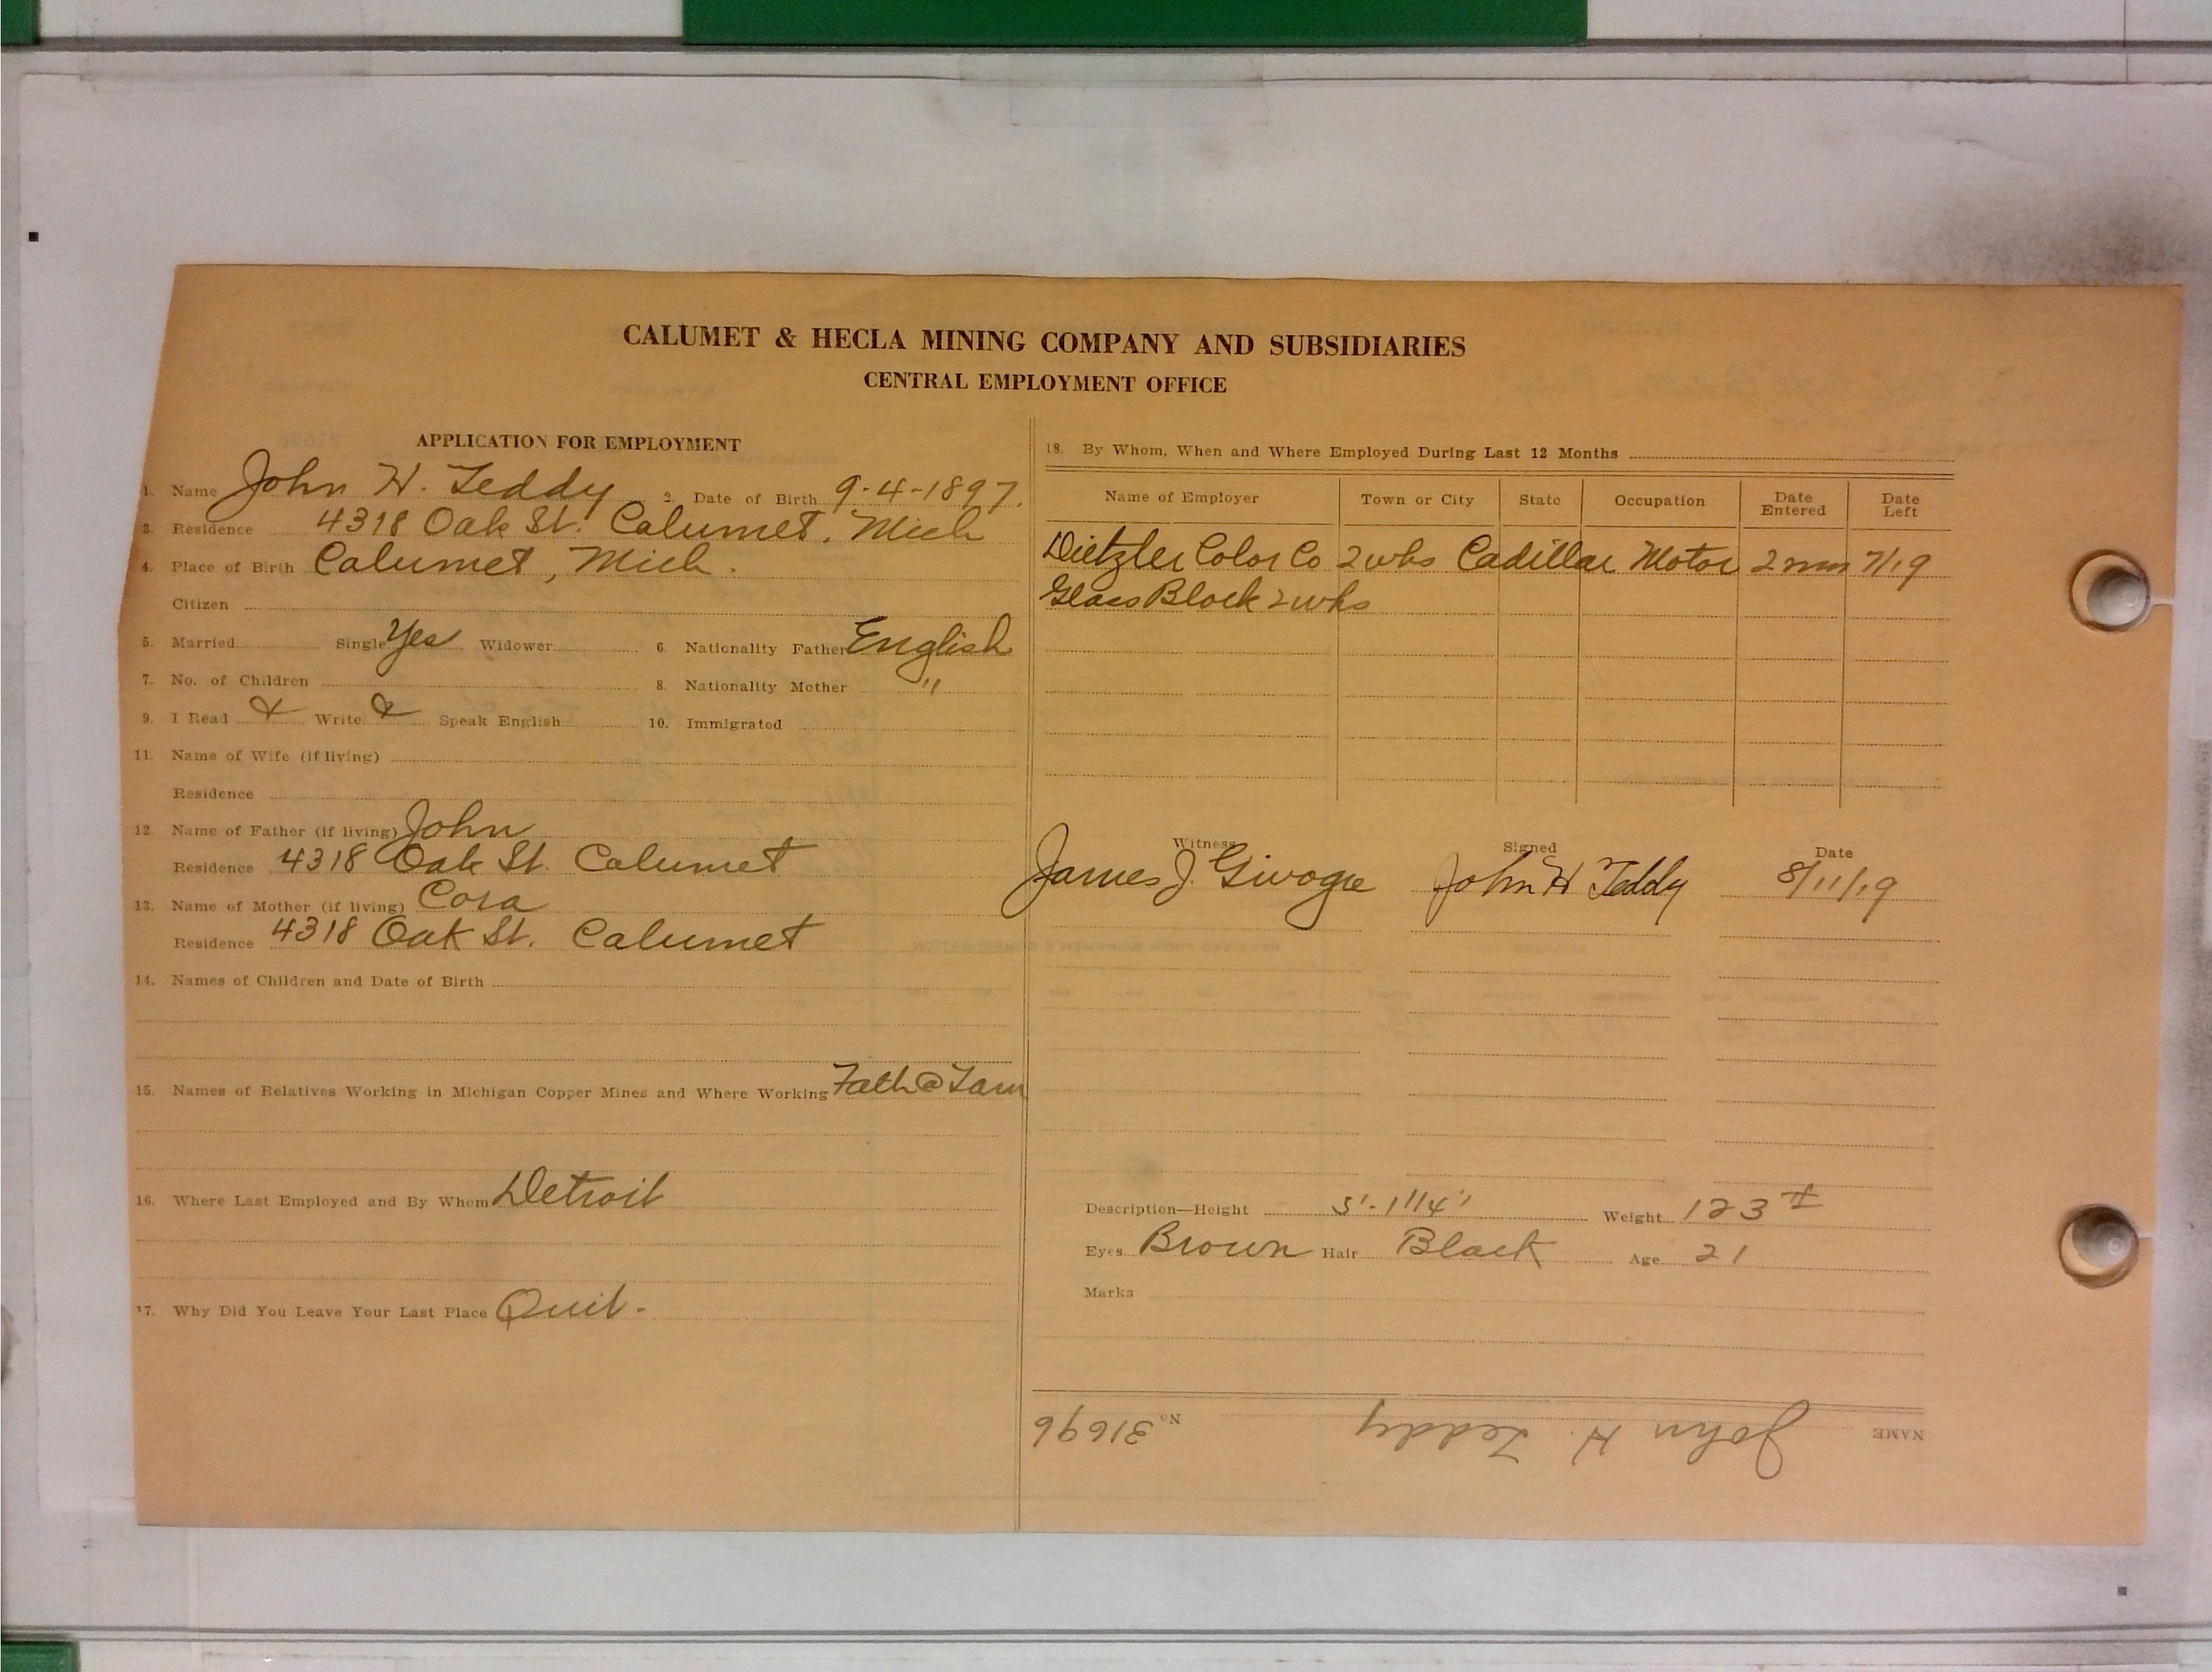 CALUMET & HECLA MINING COMPANY AND SUBSIDIARIES
CENTRAL EMPLOYMENT OFFICE
APPLICATION FOR EMPLOYMENT
1. Name John H. Teddy 2. Date of Birth 9-4-1897.
3. Residence 4318 Oak St. Calumet, Mich
4. Place of Birth Calumet, Mich.
Citizen
5. Married Single Yes Widower 6. Nationality Father English
7. No. of Children 8. Nationality Mother "
9. I Read & Write & Speak English 10. Immigrated
11. Name of Wife (if living)
Residence
12. Name of Father (if living) John
Residence 4318 Oak St. Calumet
13. Name of Mother (if living) Cora
Residence 4318 Oak St. Calumet
14. Names of Children and Date of Birth
15. Names of Relatives Working in Michigan Copper Mines and Where Working Fath @ Tam
16. Where Last Employed and By Whom Detroit
17. Why Did You Leave Your Last Place Quit.
18. By Whom, When and Where Employed During Last 12 Months
Name of Employer Town or City State Occupation Date Entered Date Left
Dietzler Color Co 2 wks Cadillac Motor 2 mn 7/19
Glass Block 2 wks
Witness Signed Date
James J. John H Teddy 8/11/19
Description—Height 5'-1 1/4" Weight 123 #
Eyes Brown Hair Black Age 21
Marks
NAME John H. Teddy No. 31696